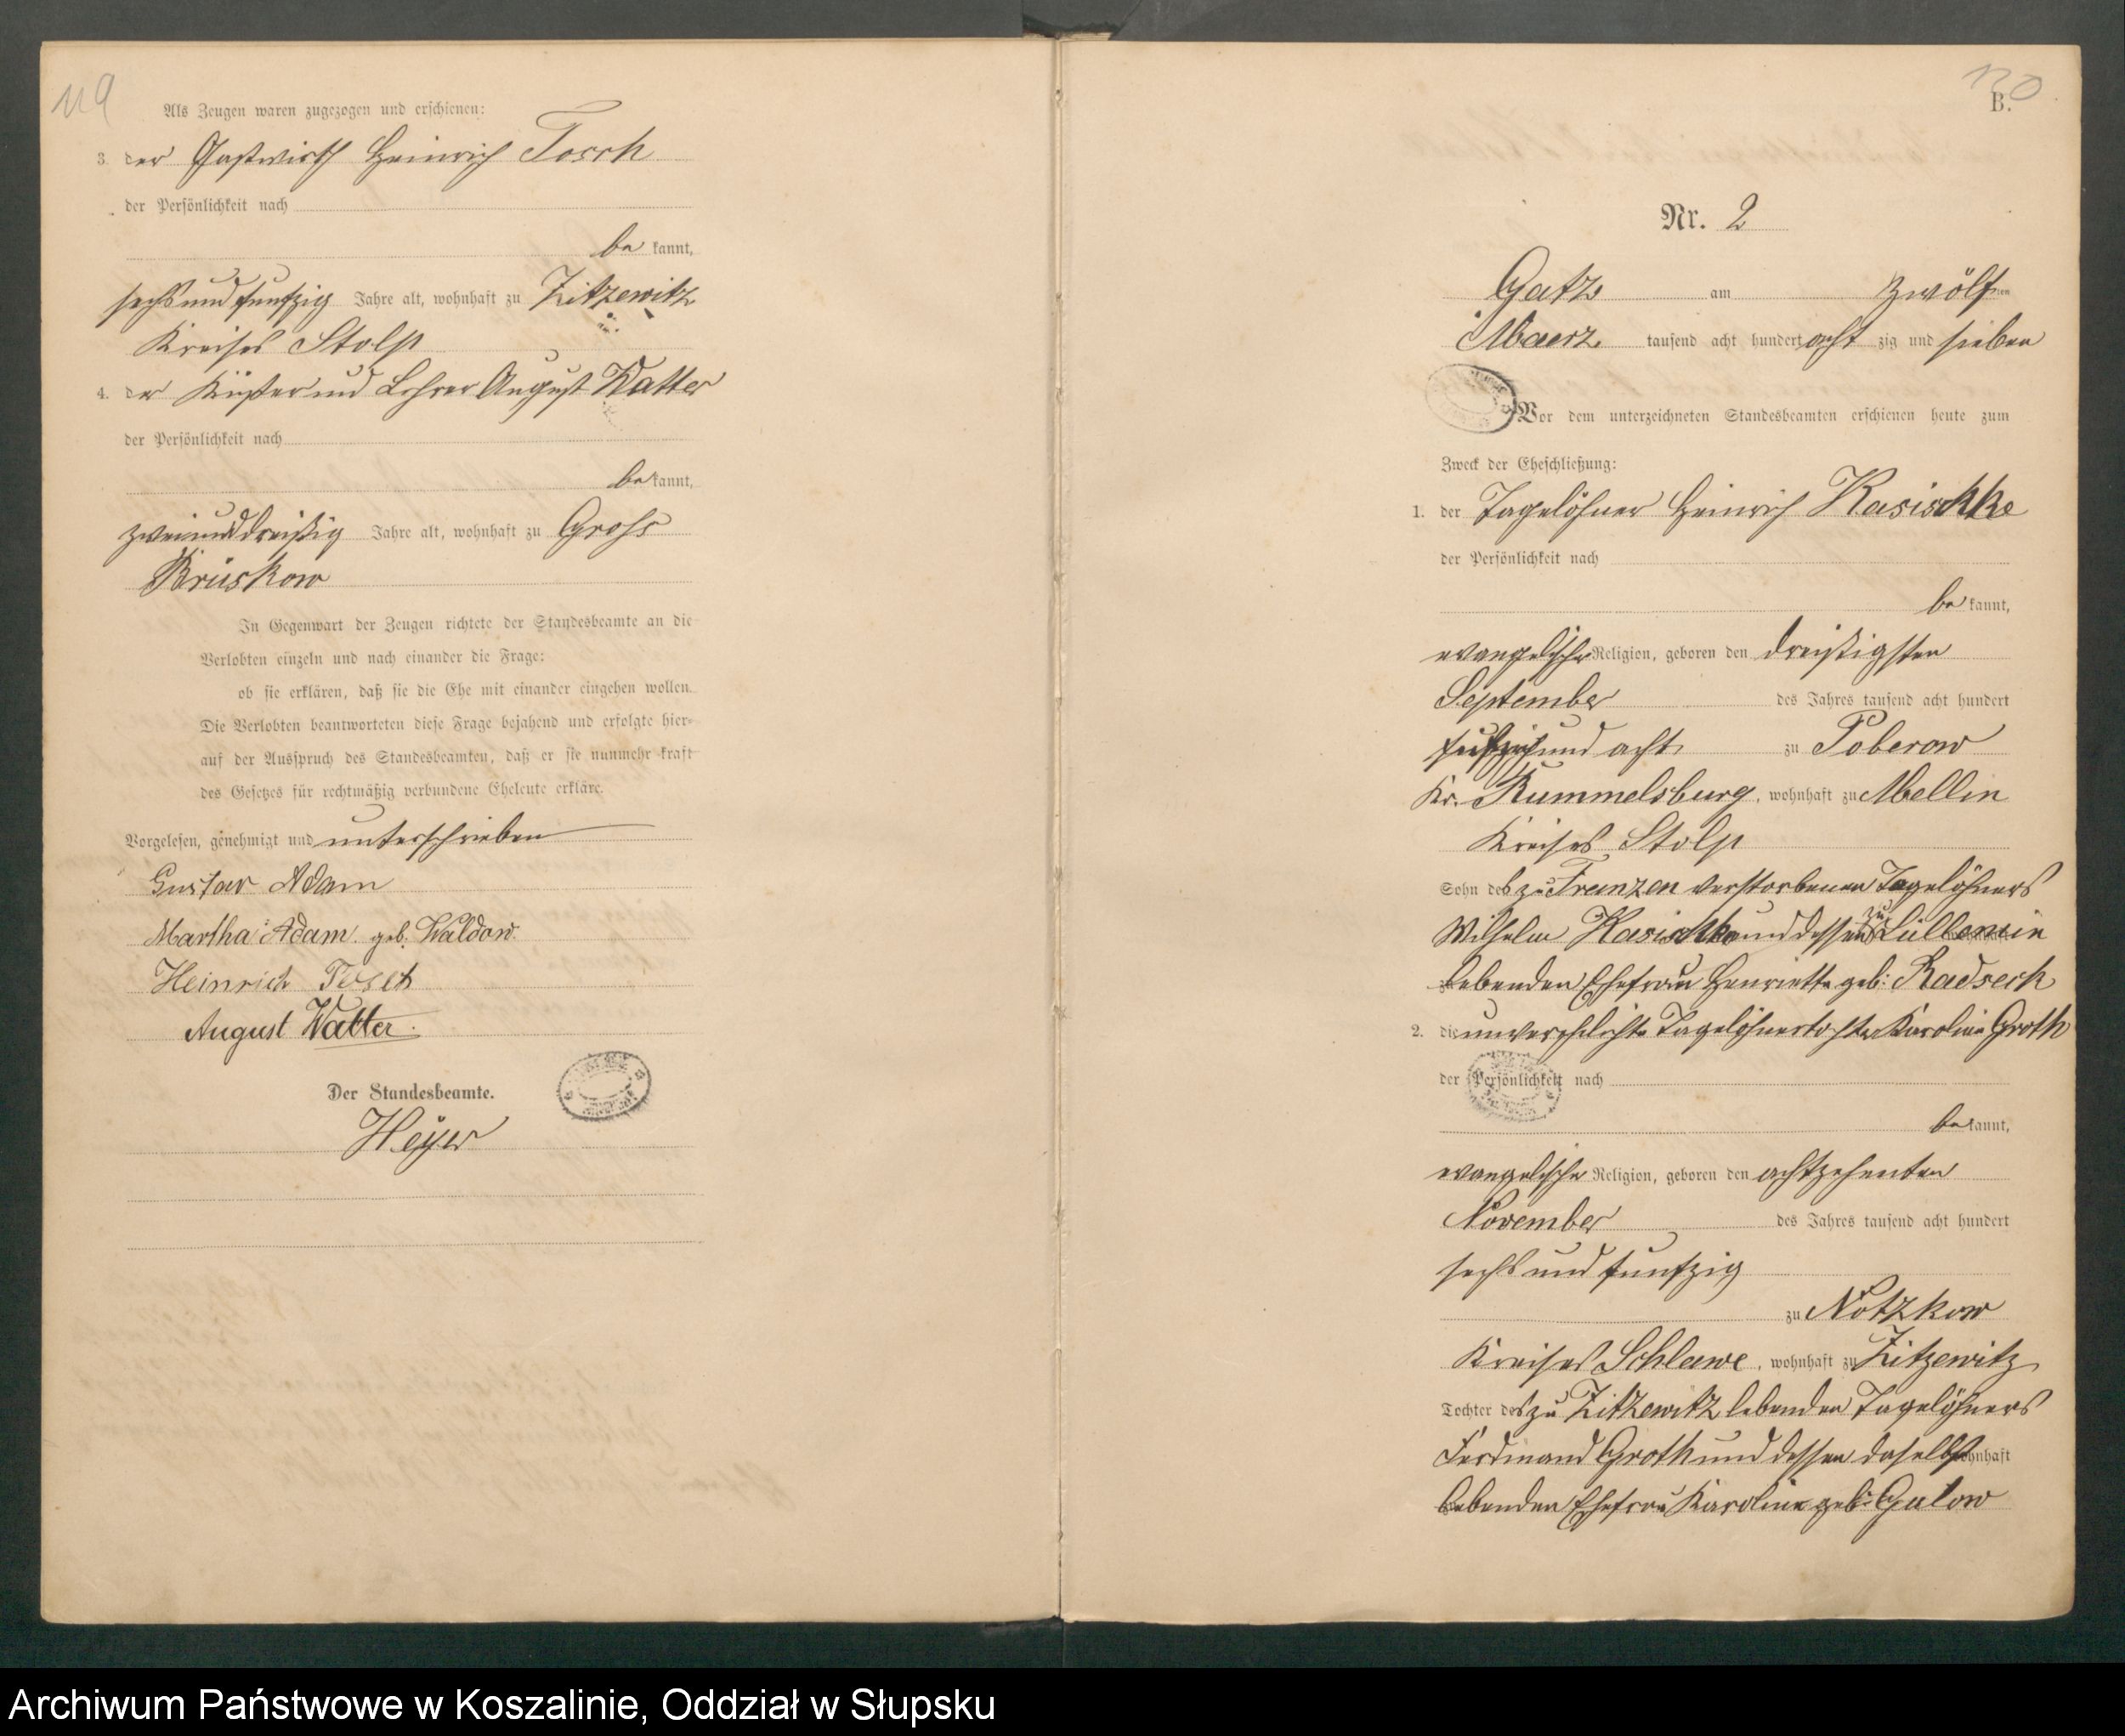 119
Als Zeugen waren zugezogen und erschienen:
3. der Gastwirth Heinrich Tosch
der Persönlichkeit nach
be kannt,
sechs und funfzig Jahre alt, wohnhaft zu Zitzewitz
Kreises Stolp
4. der Küster und Lehrer August Watter
der Persönlichkeit nach
be kannt,
zweiunddreißig Jahre alt, wohnhaft zu Gross
Brüskow
In Gegenwart der Zeugen richtete der Standesbeamte an die
Verlobten einzeln und nach einander die Frage:
ob sie erklären, daß sie die Ehe mit einander eingehen wollen.
Die Verlobten beantworteten diese Frage bejahend und erfolgte hier-
auf der Ausspruch des Standesbeamten, daß er sie nunmehr kraft
des Gesetzes für rechtmäßig verbundene Eheleute erkläre.
Vorgelesen, genehmigt und unterschrieben
Gustav Adam
Martha Adam geb. Waldow.
Heinrich Tosch
August Watter.
Der Standesbeamte.
Heyer
130
B.
Nr. 2
Gatz am zwölften
Maerz tausend acht hundert acht zig und sieben
Vor dem unterzeichneten Standesbeamten erschienen heute zum
Zweck der Eheschließung:
1. der Tagelöhner Heinrich Kasischke
der Persönlichkeit nach
be kannt,
evangelischer Religion, geboren den dreißigsten
September des Jahres tausend acht hundert
fufzig und acht zu Poberow
Kr. Rummelsburg, wohnhaft zu Mellin
Kreises Stolp
Sohn des zu Franzen verstorbenen Tagelöhners
Wilhelm Kasischke und dessen zu Lüllemin
lebenden Ehefrau Henriette geb: Radseck
2. die unverehelichte Tagelöhnertochter Karoline Groth
der Persönlichkeit nach
be kannt,
evangelischer Religion, geboren den achtzehenten
November des Jahres tausend acht hundert
sechs und funfzig
zu Notzkow
Kreises Schlawe, wohnhaft zu Zitzewitz
Tochter des zu Zitzewitz lebenden Tagelöhners
Ferdinand Groth und dessen daselbst wohnhaft
lebenden Ehefrau Karoline geb: Gutow
Archiwum Państwowe w Koszalinie, Oddział w Słupsku